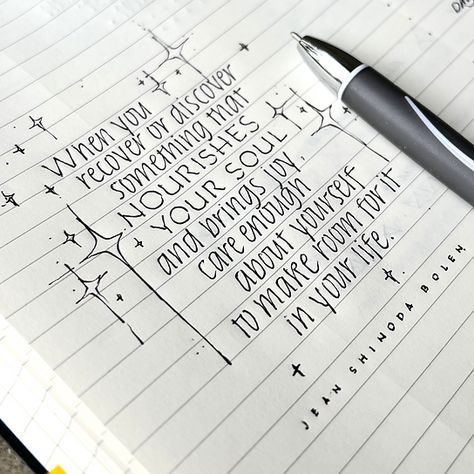 When you
recover or discover
something that
NOURISHES
YOUR SOUL
and brings joy,
care enough
about yourself
to make room for it
in your life.
JEAN SHINODA BOLEN